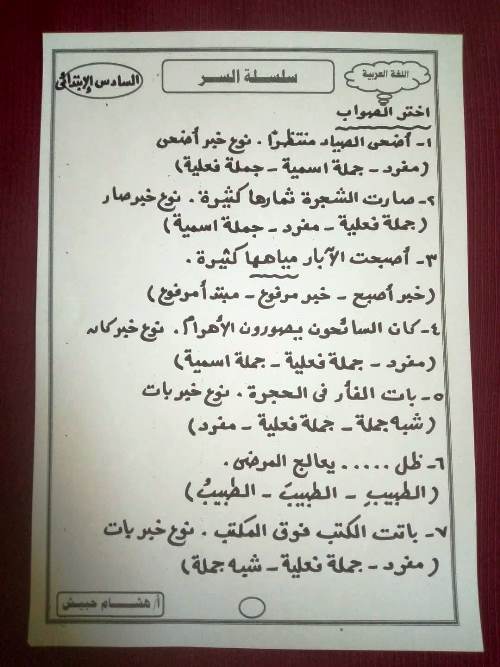 اللغة العربية
سلسلة السر
السادس الإبتدائى
اختر الصواب
١- أضحى الصياد منتظرًا . نوع خبر أضحى
(مفرد - جملة اسمية - جملة فعلية)
٢- صارت الشجرة ثمارها كثيرة . نوع خبر صار
(جملة فعلية - مفرد - جملة اسمية)
٣- أصبحت الآبار مياهها كثيرة .
(خبر أصبح - خبر مرفوع - مبتدأ مرفوع)
٤- كان السائحون يصورون الأهرام . نوع خبر كان
(مفرد - جملة فعلية - جملة اسمية)
٥- بات الفأر فى الحجرة . نوع خبر بات
(شبه جملة - جملة فعلية - مفرد)
٦- ظل ..... يعالج المرضى .
(الطبيبِ - الطبيبَ - الطبيبُ)
٧- باتت الكتب فوق المكتب . نوع خبر بات
(مفرد - جملة فعلية - شبه جملة)
أ/ هشام حبيش